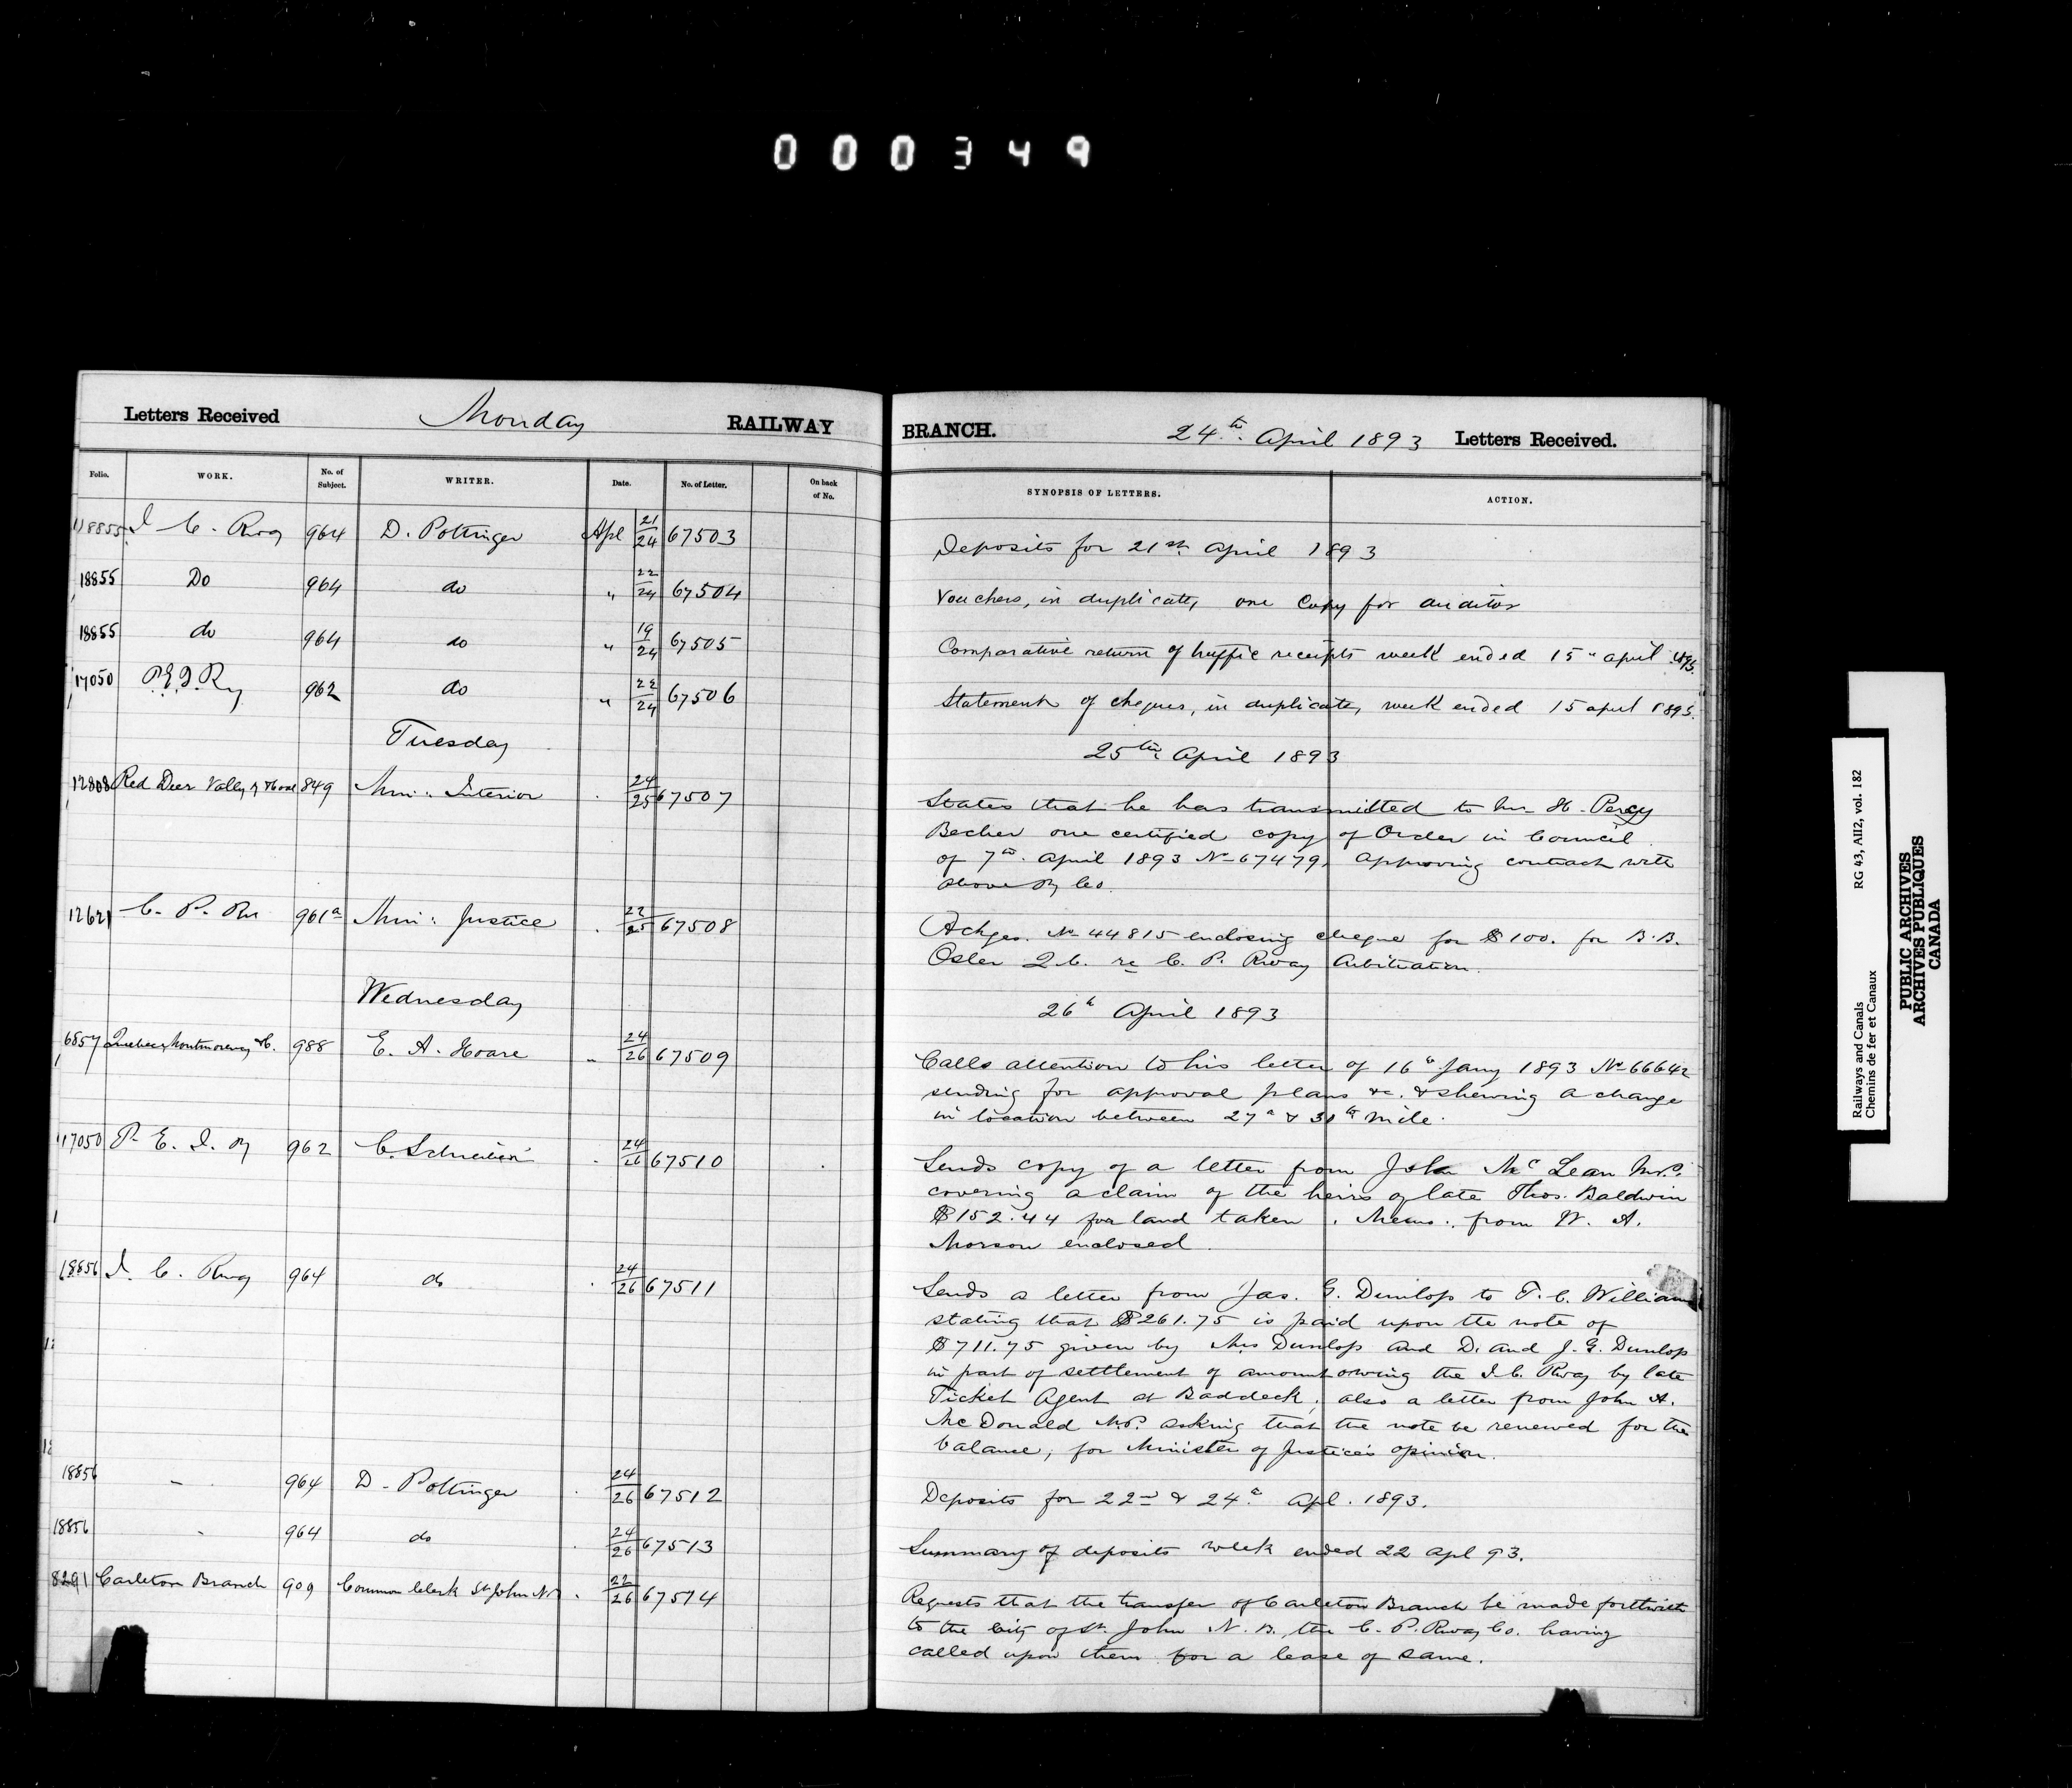 000349
Letters Received Monday RAILWAY BRANCH. 24th April 1893 Letters Received.
Folio. WORK. No. of Subject. WRITER. Date. No. of Letter. On back of No. SYNOPSIS OF LETTERS. ACTION.
18855 I. C. Rwy 964 D. Pottinger Apl 21/24 67503 Deposits for 21st April 1893
18855 Do 964 do " 22/24 67504 Vouchers, in duplicate, one Copy for auditor
18855 do 964 do " 19/24 67505 Comparative return of traffic receipts week ended 15" april 1893.
17050 P.E.I. Ry 962 do " 22/24 67506 Statement of cheques, in duplicate, week ended 15 april 1893.
Tuesday 25th April 1893
12808 Red Deer Valley Ry 849 Min: Interior . 24/25 67507 States that he has transmitted to Mr H. Percy
Becher one certified copy of Order in Council
of 7th April 1893 No 67479, approving contract with
above Ry Co.
12621 C. P. Rw 961a Min: Justice . 22/25 67508 Ackges. No 44815 enclosing cheque for $100. for B.B.
Osler Q.C. re C. P. Rway Arbitration.
Wednesday 26th April 1893
6857 Quebec, Montmorency &C. 988 E. A. Hoare " 24/26 67509 Calls attention to his letter of 16th Jany 1893 No 66642
sending for approval plans &c. & shewing a change
in location between 27th & 31st mile.
17050 P. E. I. Ry 962 C. Schreiber . 24/26 67510 Sends copy of a letter from John McLean M.P.
covering a claim of the heirs of late Thos. Baldwin
$152.44 for land taken. Memo: from W. A.
Morson enclosed.
18856 I. C. Rwy 964 do . 24/26 67511 Sends a letter from Jas. G. Dunlop to T. C. William
stating that $261.75 is paid upon the note of
$711.75 given by Mrs Dunlop and D. and J. G. Dunlop
in part of settlement of amount owing the I.C. Rway by late
Ticket Agent at Baddeck, also a letter from John A.
McDonald M.P. asking that the note be renewed for the
balance, for Minister of Justice's opinion.
18856 - 964 D. Pottinger . 24/26 67512 Deposits for 22nd & 24th Apl. 1893.
18856 - 964 do . 24/26 67513 Summary of deposits week ended 22 apl 93.
8291 Carleton Branch 909 Common Clerk St John N.B . 22/26 67514 Requests that the transfer of Carleton Branch be made forthwith
to the City of St. John N. B. the C. P. Rway Co. having
called upon them for a lease of same.
Railways and Canals RG 43, AII2, vol. 182
Chemins de fer et Canaux
PUBLIC ARCHIVES
ARCHIVES PUBLIQUES
CANADA